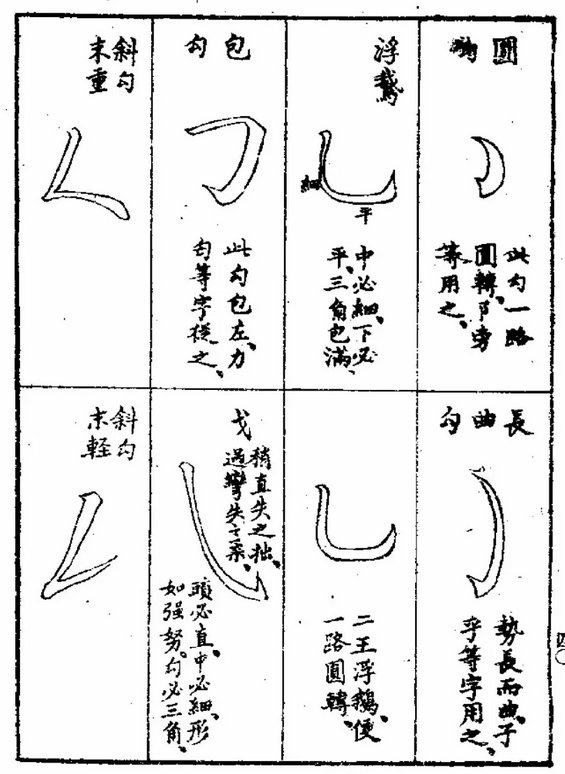 圓
此勾一路
圓轉、卩旁
等用之、
浮鵞
細
平
中必細、下必
平、三角包滿、
包勾
此勾包左、力
匀等字從之、
斜勾
末重
長曲勾
勢長而曲、子
乎等字用之、
二王浮鵝、便
一路圓轉、
戈
稍直失之拙、
過彎失之柔、
頭必直、中必細、形
如强努。勾必三角、
斜勾
末軽
四〇